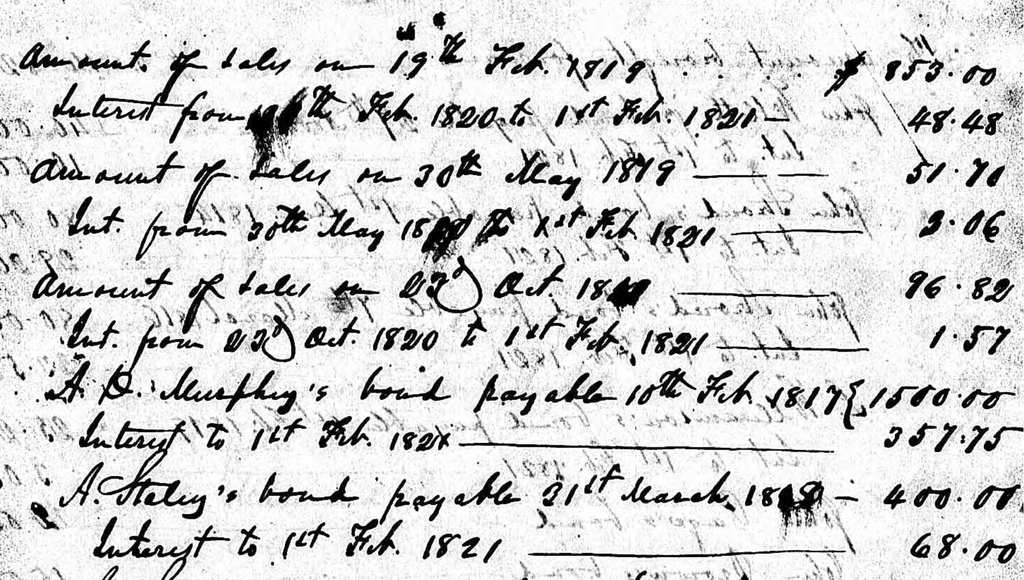 Amount of sales on 19th Feb. 1819 . . . . $ 853.00
Interest from 19th Feb. 1820 to 1st Feb. 1821 — 48.48
Amount of sales on 30th May 1819 — — 51.70
Int. from 30th May to 1st Feb 1821 — 2.06
Amount of sales on 23d Oct — 96.82
Int. from 23d Oct. 1820 to 1st Feb. 1821 — 1.57
A. D. Murphey's bond payable 10th Feb. 1817 { 1500.00
Interest to 1st Feb. 1821 — 357.75
A. Staley's bond payable 31st March — 400.00
Interest to 1st Feb. 1821 — 68.00